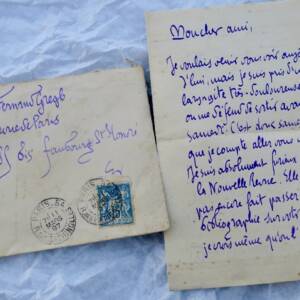 Fernand Gregh
Revue de Paris
85 bis faubourg St Honoré
Ev
Mon cher ami,
Je voulais venir vous voir auj
d'hui, mais je suis pris d'
laryngite très-douloureuse
on me défend de sortir avant
samedi. C'est donc samedi
que je compte aller vous
Je suis absolument
la Nouvelle Revue. Elle
pas encore fait passer
bibliographie sur votre
je crois même qu'on l'